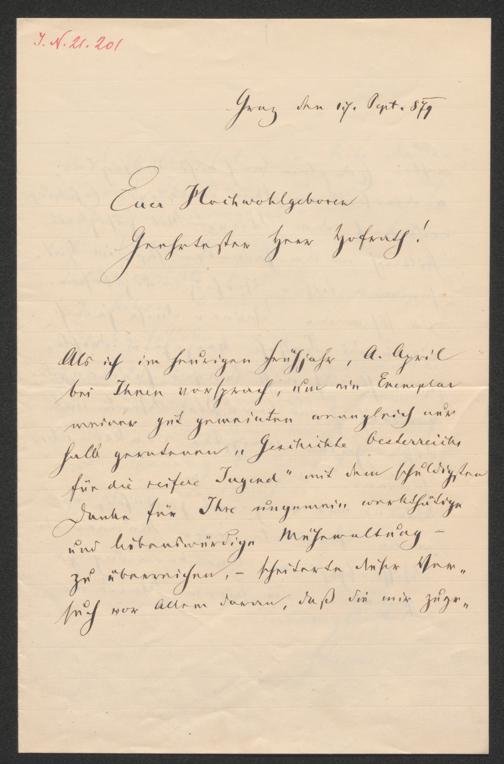 I. N. 21. 201
Graz den 17. Sept. 879
Euer Hochwohlgeboren
Geehrtester Herr Hofrath!
Als ich im heurigen Frühjahr, A. April
bei Ihnen vorsprach, um ein Exemplar
meiner gut gemeinten wenngleich nur
halb geratenen „Geschichte Oesterreichs
für die reifere Jugend" mit dem schuldigsten
Danke für Ihre ungemein werkthätige
und liebenswürdige Mühewaltung –
zu überreichen, – scheiterte dieser Ver=
such vor Allem daran, daß die mir zuge=